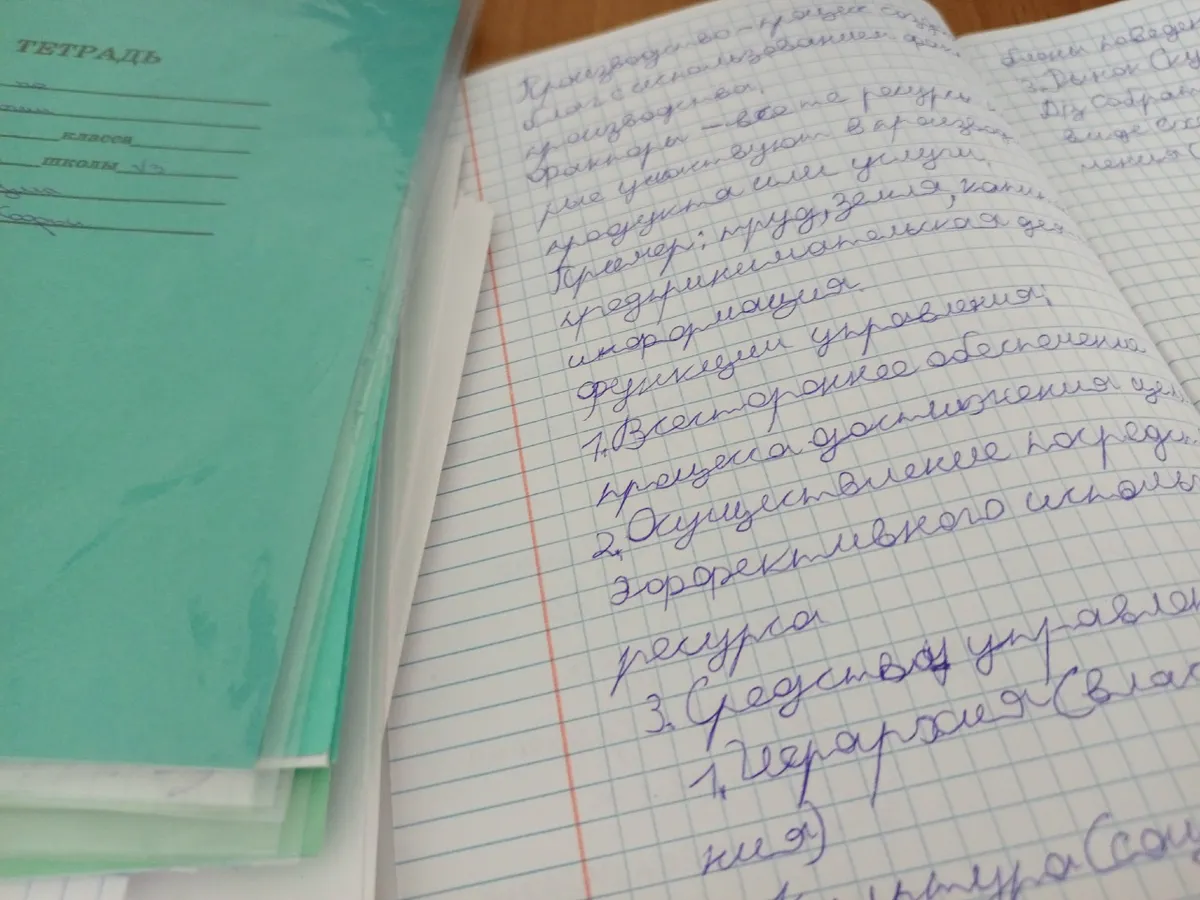 ТЕТРАДЬ
по
класса
школы √3
Производство – процесс созд
благ с использованием фак
производства.
Факторы – все те ресурсы
рые участвуют в процессе
продукта или услуги.
Пример: труд, земля, капи
предпринимательская дея
информация
функции управления:
1. Всестороннее обеспечение
процесса достижения цел
2. Осуществление посредс
эффективного использ
ресурса
3. Средства управлен
1. Иерархия (влас
ния)
ьтура (соц
блоны поведен
3. Рынок (ку
Д/з собрат
виде сх
мения (